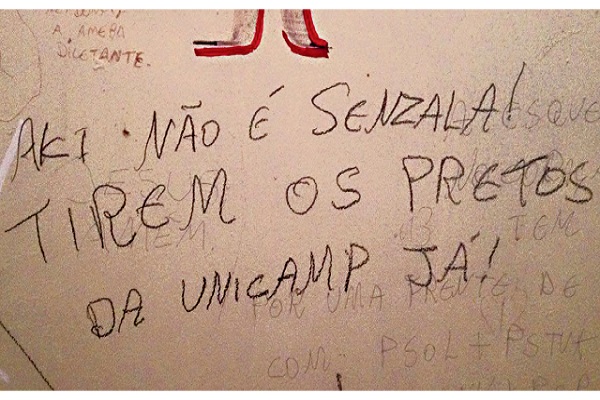 A AMEBA
DILETANTE.
AKI NÃO É SENZALA!
TIREM OS PRETOS
DA UNICAMP JÁ!
ESQUE
TEM
POR UMA FRENTE DE
COM PSOL + PSTU